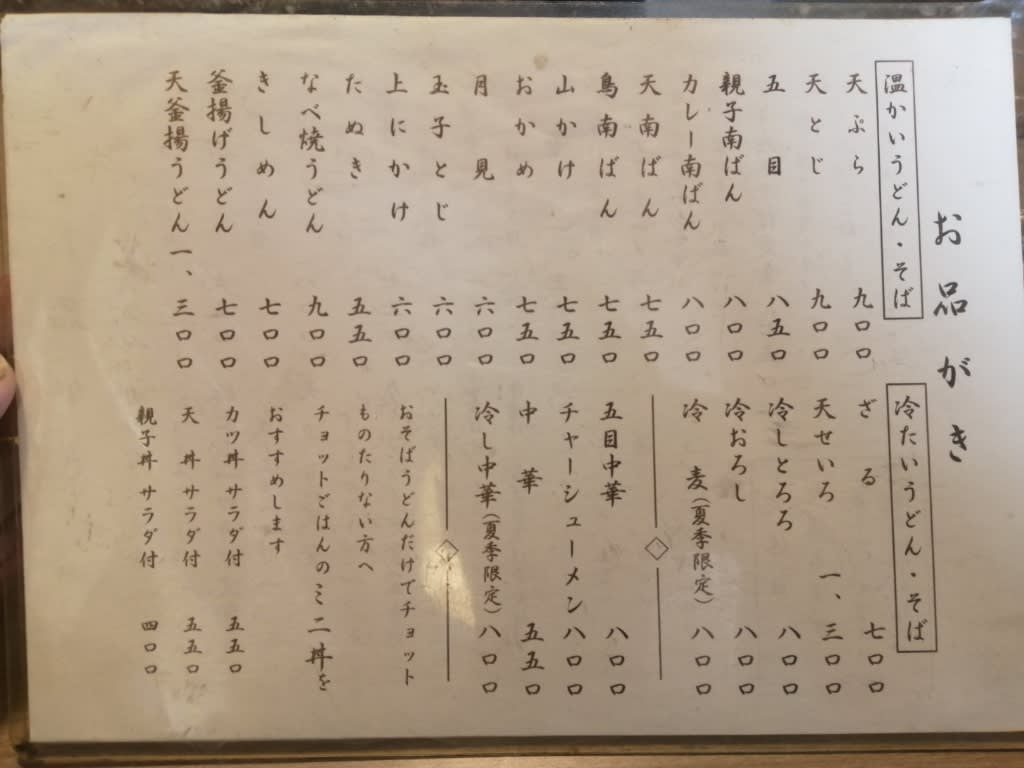 お品がき
温かいうどん・そば
天ぷら 九〇〇
天とじ 九〇〇
五目 八五〇
親子南ばん 八〇〇
カレー南ばん 八〇〇
天南ばん 七五〇
鳥南ばん 七五〇
山かけ 七五〇
おかめ 七五〇
月見 六〇〇
玉子とじ 六〇〇
上にかけ 六〇〇
たぬき 五五〇
なべ焼うどん 九〇〇
きしめん 七〇〇
釜揚げうどん 七〇〇
天釜揚うどん 一、三〇〇
冷たいうどん・そば
ざる 七〇〇
天せいろ 一、三〇〇
冷しとろろ 八〇〇
冷おろし 八〇〇
冷麦(夏季限定) 八〇〇
五目中華 八〇〇
チャーシューメン 八〇〇
中華 五五〇
冷し中華(夏季限定) 八〇〇
おそばうどんだけでチョット
ものたりない方へ
チョットごはんのミニ丼を
おすすめします
カツ丼 サラダ付 五五〇
天丼 サラダ付 五五〇
親子丼 サラダ付 四〇〇